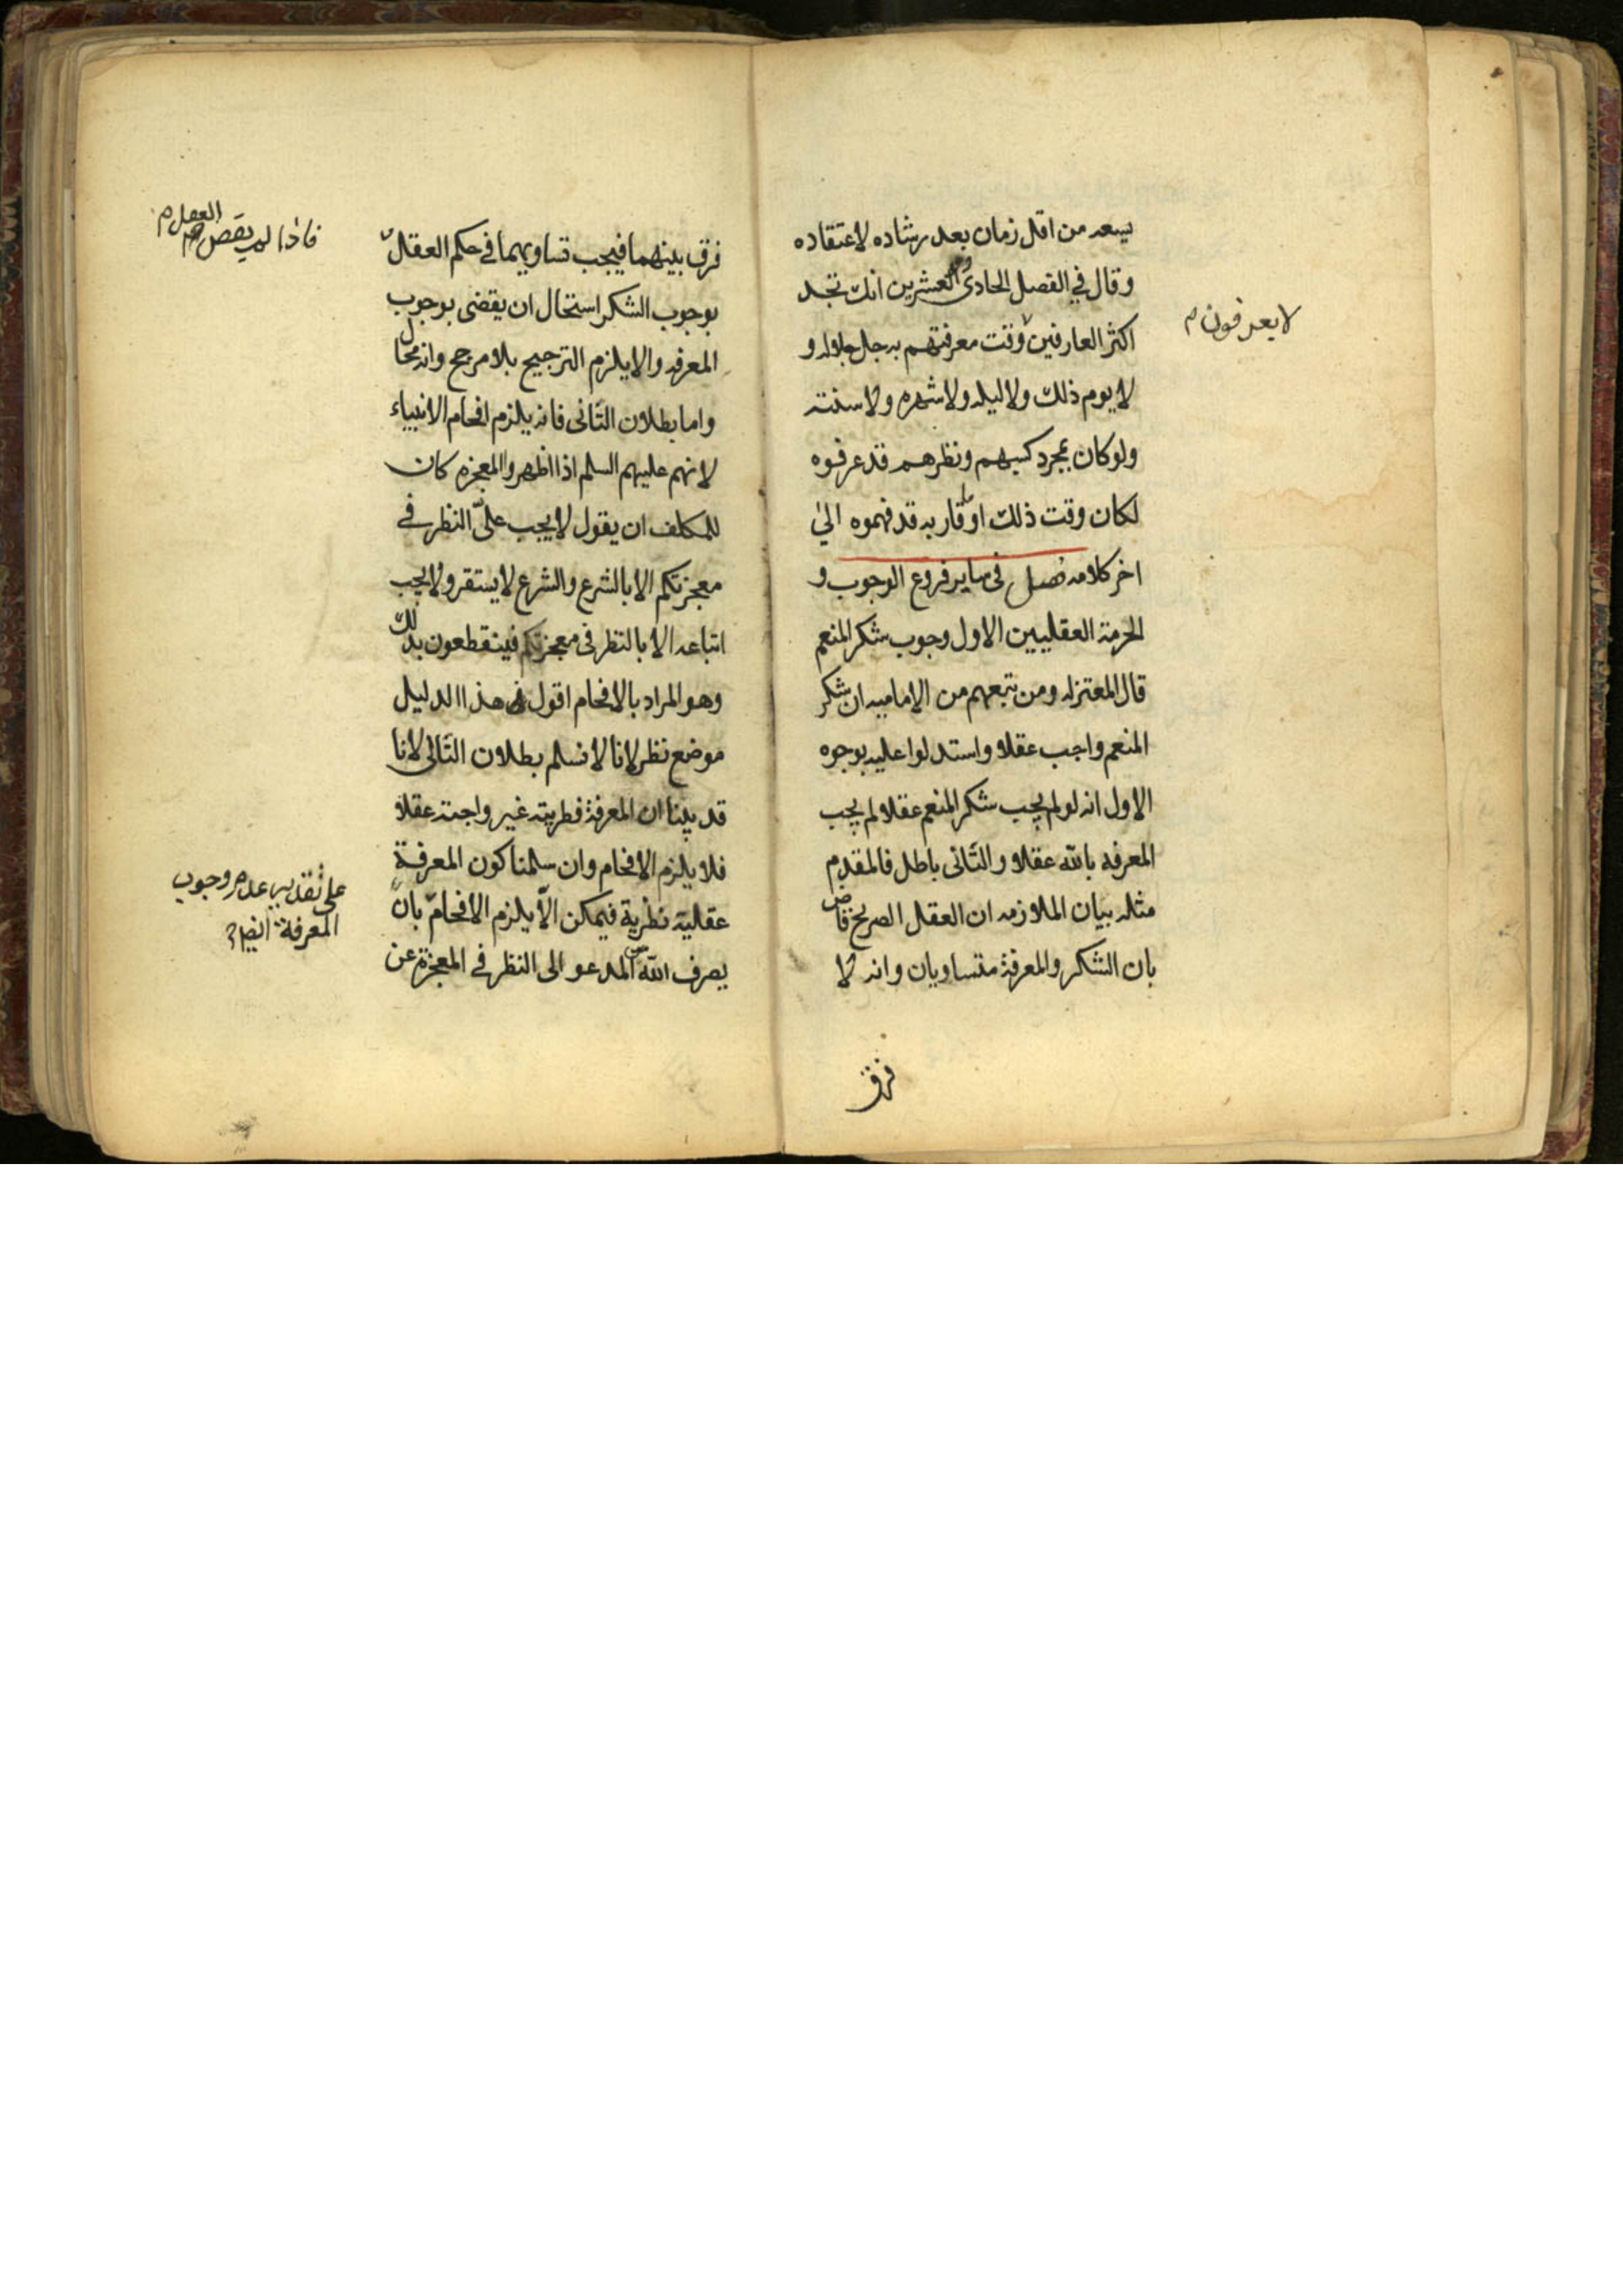 يسعه من اقل زمان بعد رشاده لاعتقاده
وقال في الفصل الحادى والعشرين انك تجد
اكثر العارفين وقت معرفتهم به جل جلاله و
لا يعرفون م
لا يوم ذلك ولا ليله ولا شهره ولا سنته
ولو كان بمجرد كسبهم ونظرهم قد عرفوه
لكان وقت ذلك او ما قاربه قد فهموه الى
اخر كلامه فصل فى ساير فروع الوجوب و
الحرمة العقليين الاول وجوب شكر المنعم
قال المعتزله ومن تبعهم من الاماميه ان شكر
المنعم واجب عقلا واستدلوا عليه بوجوه
الاول انه لو لم يجب شكر المنعم عقلا لم يجب
المعرفه بالله عقلا والثانى باطل فالمقدم
مثله بيان الملازمه ان العقل الصريح قاض
بان الشكر والمعرفة متساويان وانه لا
فرق
فرق بينهما فيجب تساويهما فى حكم العقل
فاذا لم يقض العقل م
بوجوب الشكر استحال ان يقضى بوجوب
المعرفه والا يلزم الترجيح بلا مرجح وانه محال
واما بطلان الثانى فانه يلزم افحام الانبياء
لانهم عليهم السلم اذا اظهروا المعجزه كان
للمكلف ان يقول لا يجب علىّ النظر فى
معجزتكم الا بالشرع والشرع لا يستقر ولا يجب
اتباعه الا بالنظر فى معجزتكم فينقطعون بذلك
وهو المراد بالافحام اقول فى هذا الدليل
موضع نظر لانا لا نسلم بطلان التالى لانا
قد بينا ان المعرفة فطريته غير واجبة عقلا
فلا يلزم الافحام وان سلمنا كون المعرفة
عقلية نظرية فيمكن الّا يلزم الافحام بان
على تقدير عدم وجوب
المعرفة ايضا
يصرف الله المدعو الى النظر فى المعجزة عن